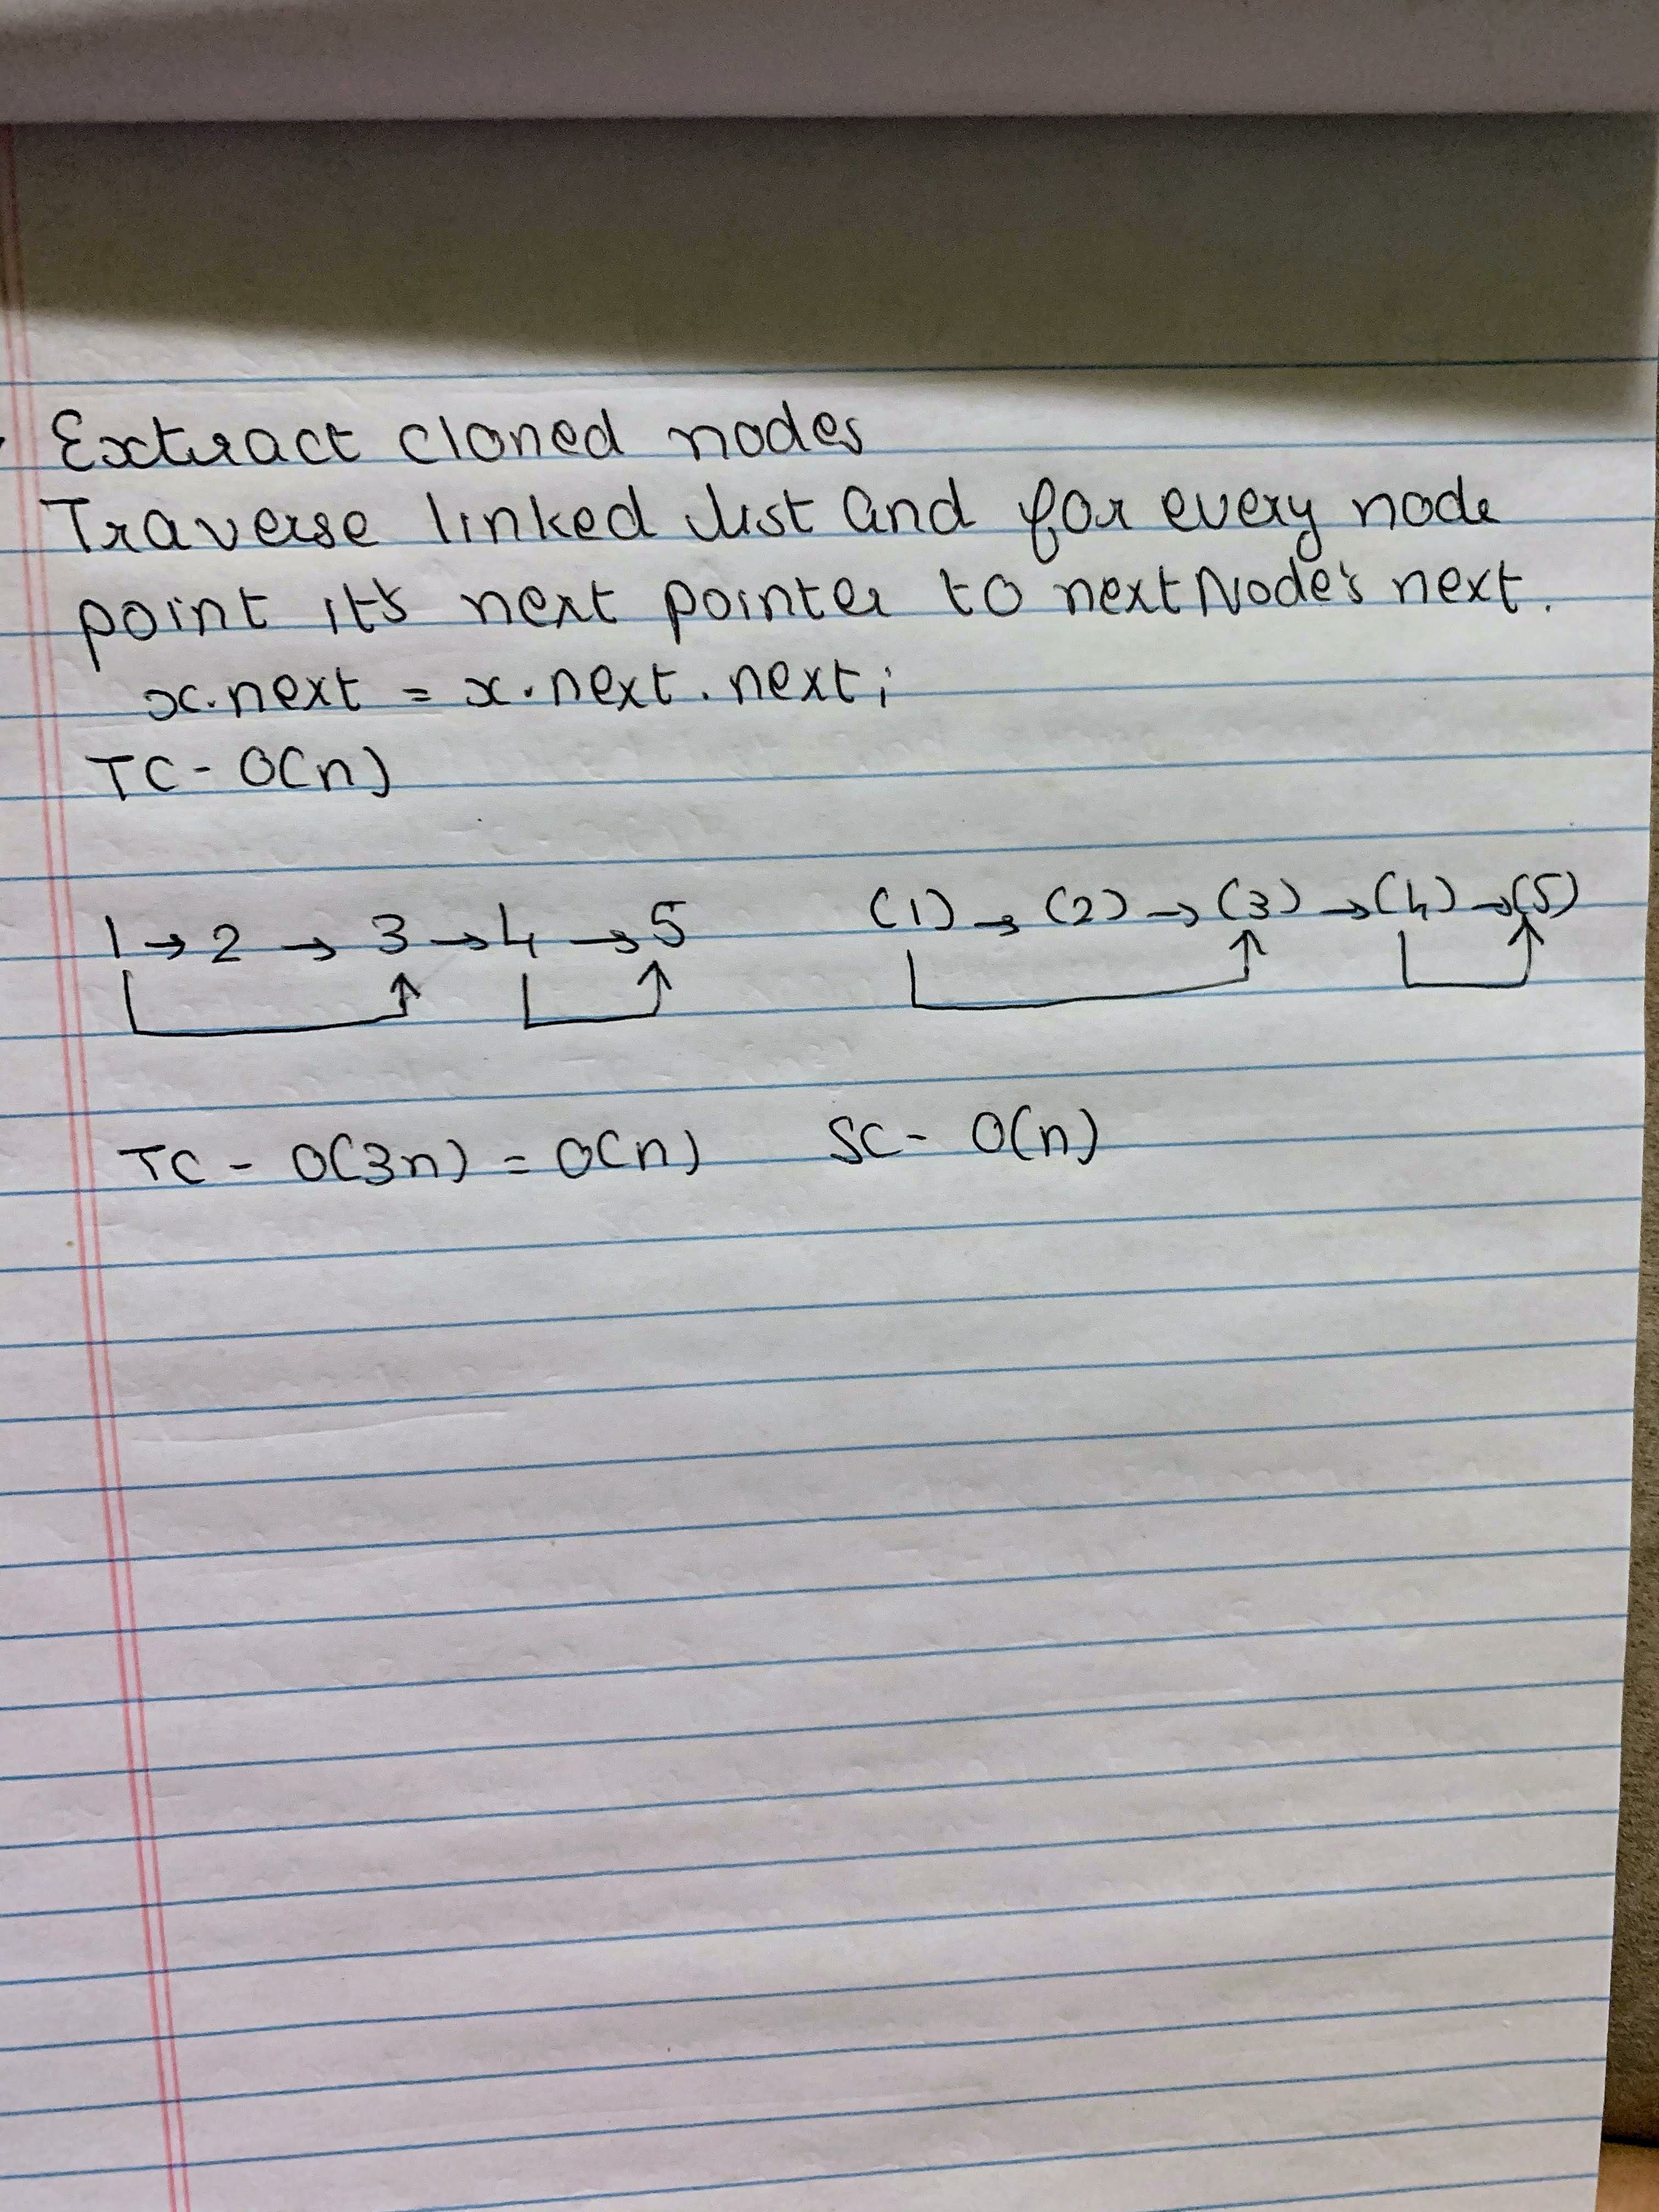 Extract cloned nodes
Traverse linked list and for every node
point it's next pointer to nextNode's next.
x.next = x.next.next;
TC - O(n)
1 → 2 → 3 → 4 → 5 (1) → (2) → (3) → (4) → (5)
TC - O(3n) = O(n) SC - O(n)